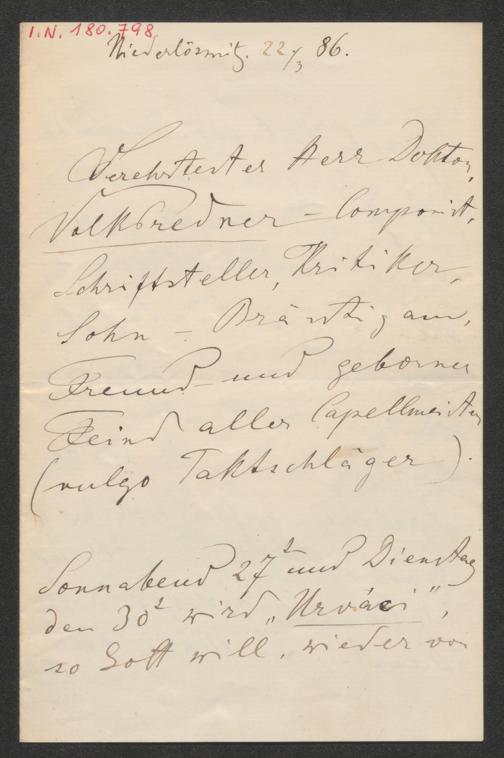 I.N. 180.798
Niederlössnitz. 22/3 86.
Verehrtester Herr Doktor,
Volksredner – Componist,
Schriftsteller, Kritiker,
Sohn – Bräutigam,
Freund und geborner
Feind aller Capellmeister
(vulgo Taktschläger).
Sonnabend 27t und Dienstag
den 30t wird „Urvaci",
so Gott will, wieder von